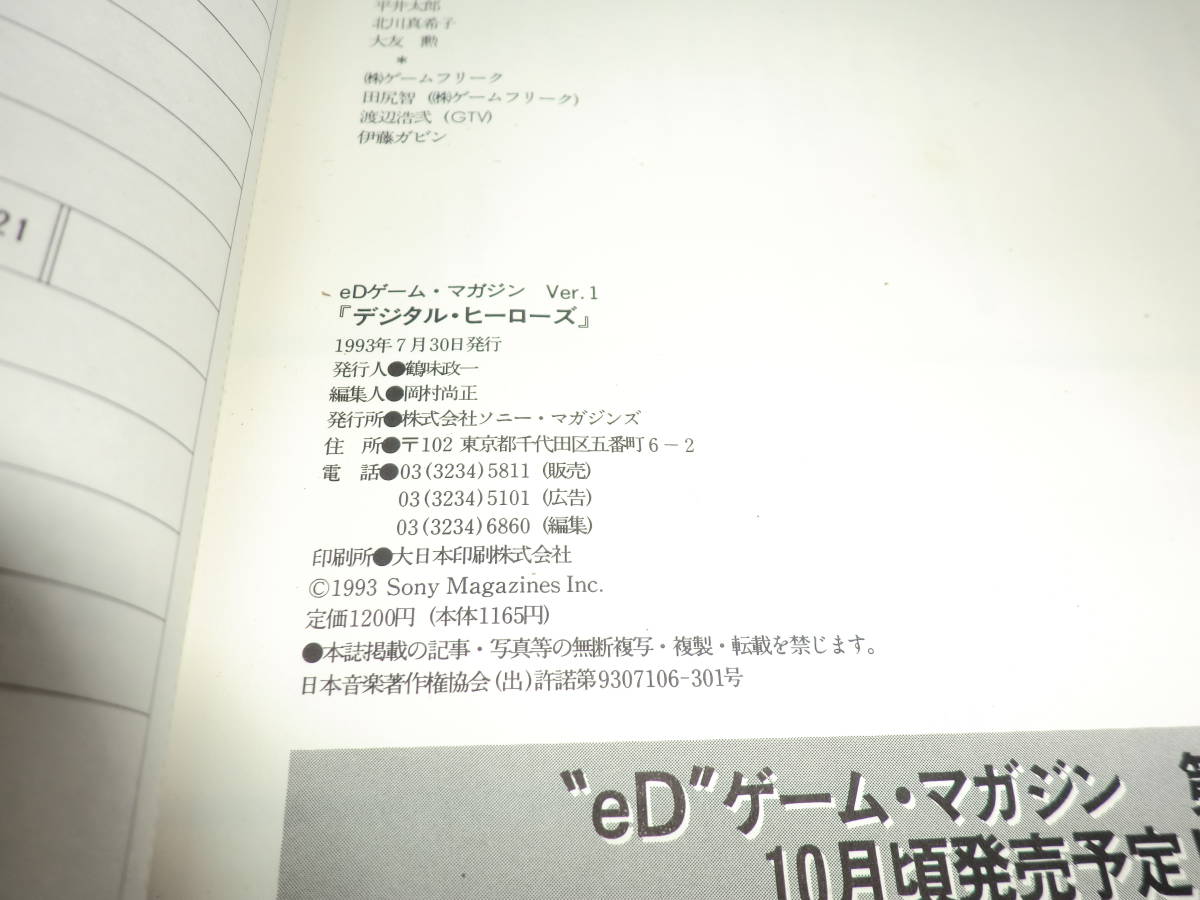 平井太郎
北川真希子
大友 勲
*
㈱ゲームフリーク
田尻智 (㈱ゲームフリーク)
渡辺浩弐 (GTV)
伊藤ガビン
21
eDゲーム・マガジン Ver.1
『デジタル・ヒーローズ』
1993年7月30日発行
発行人●鶴味政一
編集人●岡村尚正
発行所●株式会社ソニー・マガジンズ
住 所●〒102 東京都千代田区五番町6-2
電 話●03(3234)5811 (販売)
03(3234)5101 (広告)
03(3234)6860 (編集)
印刷所●大日本印刷株式会社
©1993 Sony Magazines Inc.
定価1200円 (本体1165円)
●本誌掲載の記事・写真等の無断複写・複製・転載を禁じます。
日本音楽著作権協会(出)許諾第9307106-301号
"eD"ゲーム・マガジン 第
10月頃発売予定!